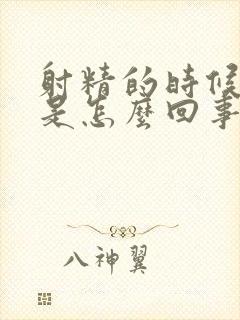 射精的時候
是怎麼回事
八神翼